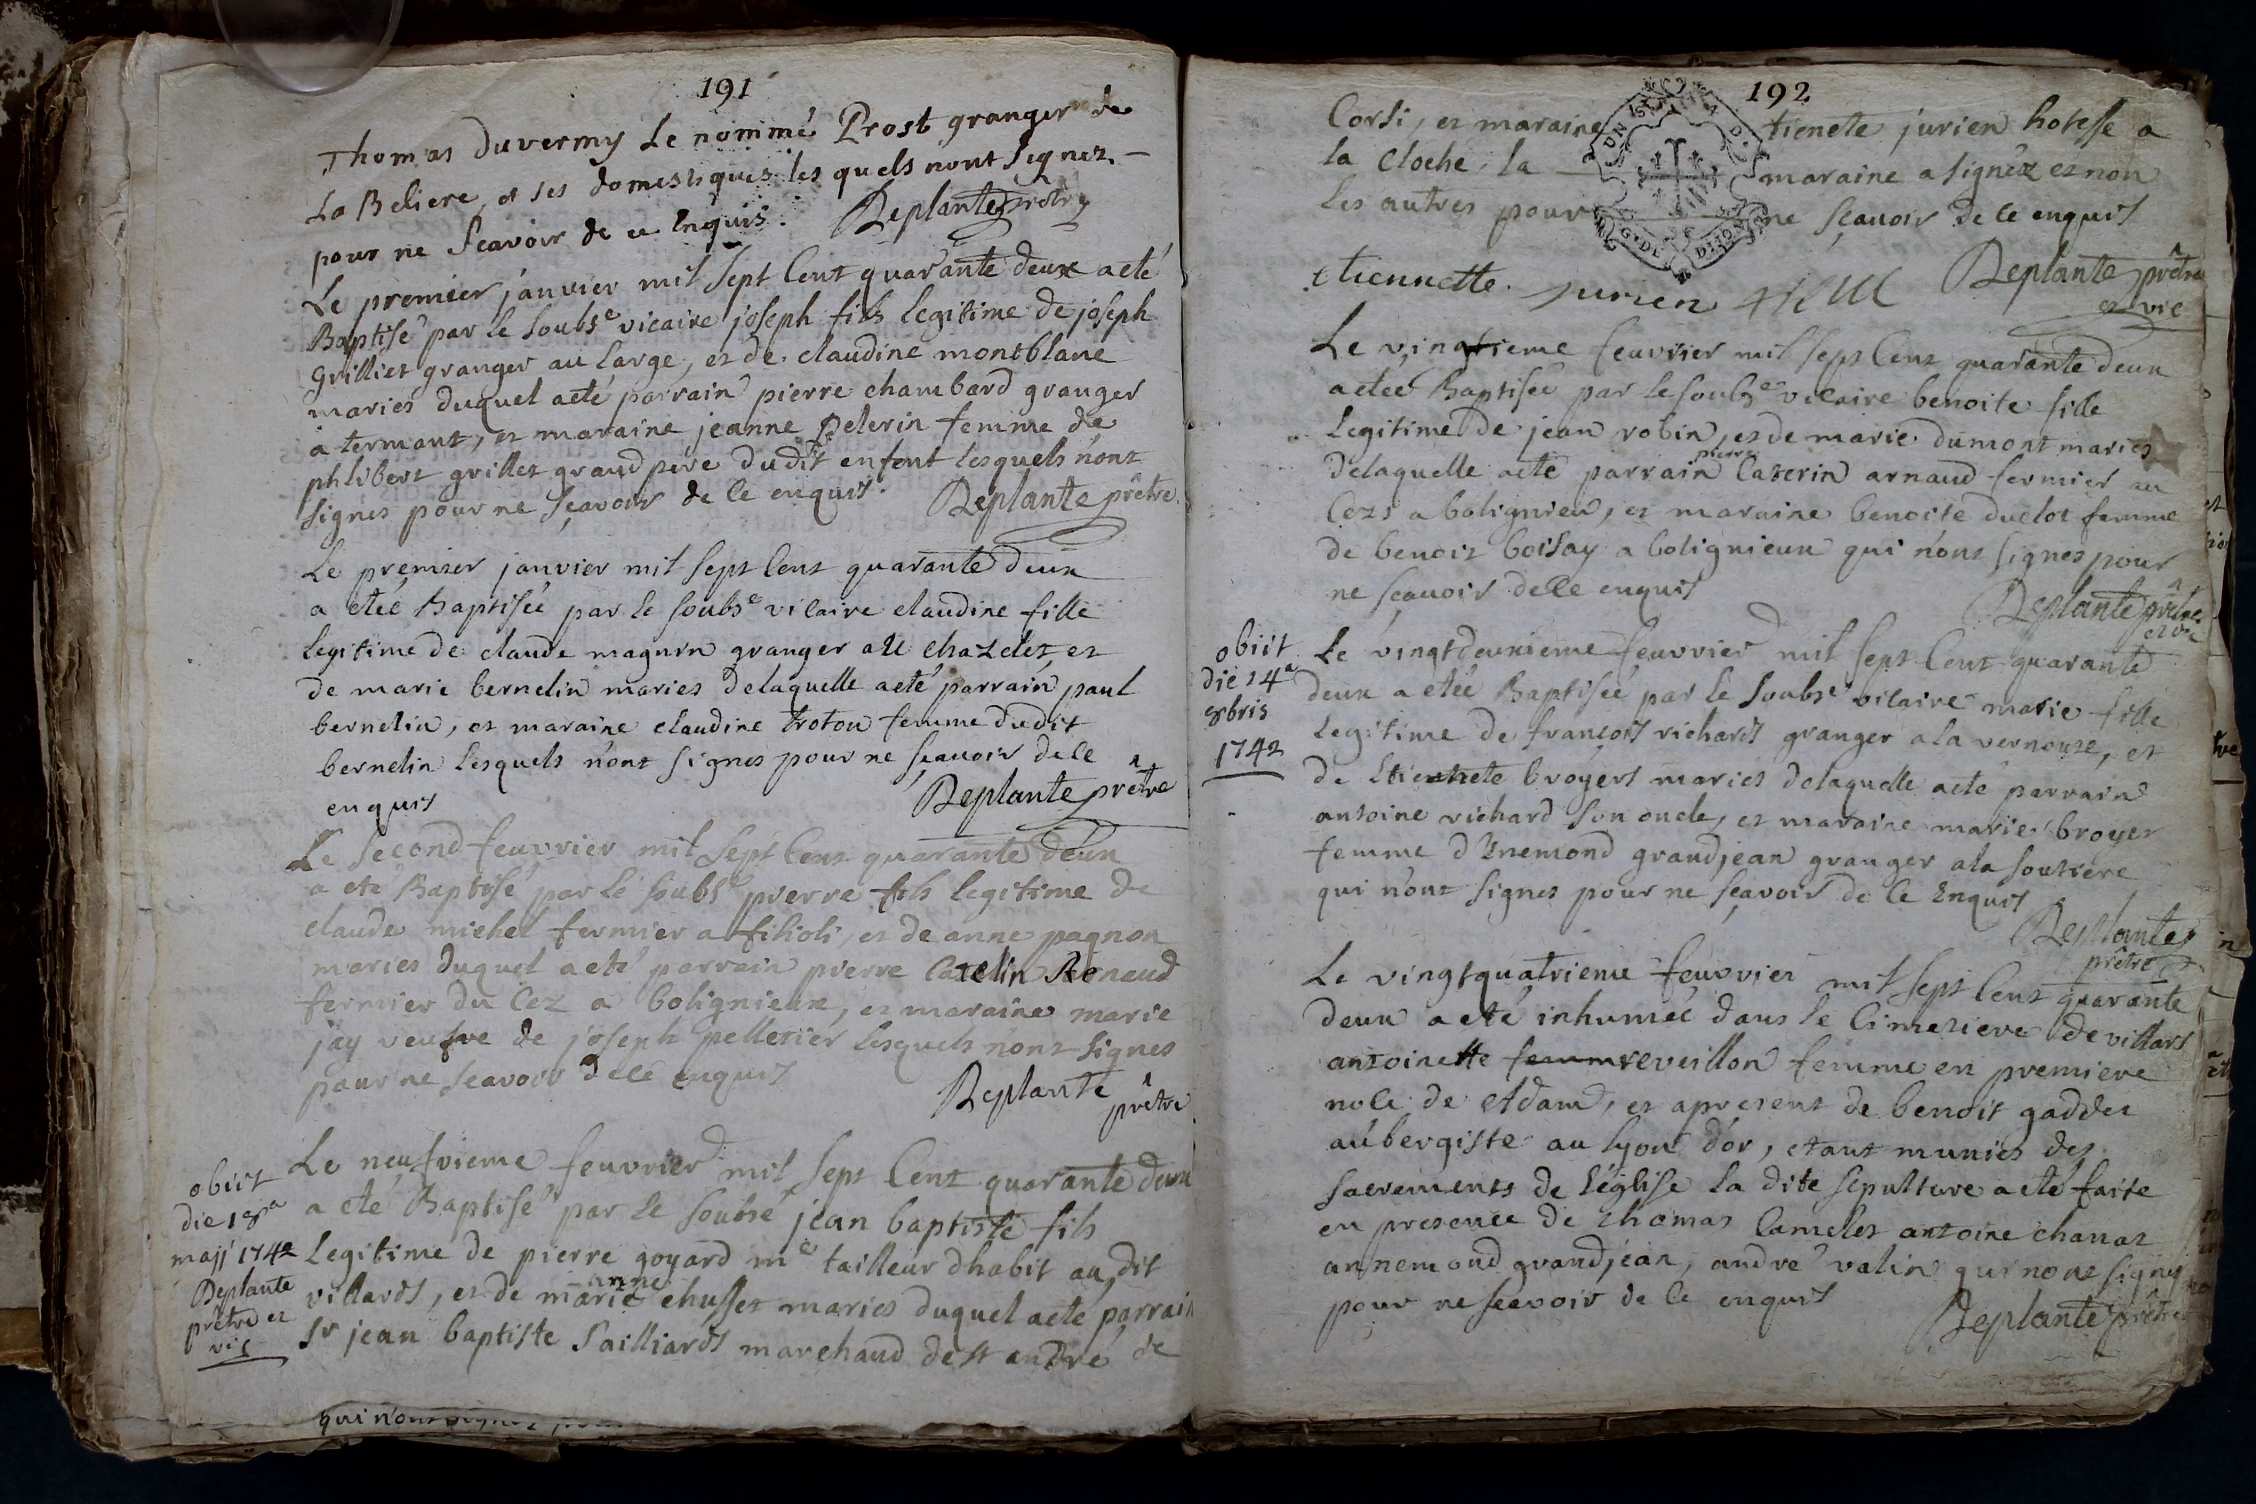 191
Thomas Duvermy Le nommé Prost granger de
La Beliere, et ses domestiques les quels nont signez
pour ne Scavoir de ce Enquis. Deplante prêtre
Le premier janvier mil sept Cent quarante deux a eté
Baptisé par le soubs.é vicaire joseph fils legitime de joseph
grilliet granger au large, et de claudine montblanc
maries duquel a eté parrain pierre chambard granger
a termant, et maraine jeanne pelerin femme de
phlibert grillet grand pere dudit enfent lesquels n'ont
signes pour ne sçavoir de ce enquis. Deplante prêtre
Le premier janvier mil sept Cent quarante deux
a etéé Baptiséé par le soubs.e vicaire claudine fille
legitime de claude magnin granger au chazelet, et
de marie bernelin maries delaquelle a eté parrain paul
bernelin, et maraine claudine troton femme dudit
bernelin lesquels n'ont signes pour ne sçavoir de ce
enquis Deplante prêtre
Le second feuvrier mil sept Cent quarante deux
a eté Baptisé par le soubs.e pierre fils legitime de
claude michel fermier a filioli, et de anne pagnon
maries duquel a eté parrain pierre Catelin Renaud
fermier du Cez a bolignieux, et maraine marie
jay veufve de joseph pelletier lesquels n'ont signes
pour ne scavoir de ce enquis
Deplante prêtre
obiit
die 18a
maji 1742
Deplante
prêtre et
vic
Le neufvieme feuvrier mil sept Cent quarante deux
a eté Baptisé par le soubsé jean baptiste fils
Legitime de pierre goyard me tailleur dhabit au dit
anne
villards, et de marie chusset maries duquel a eté parrain
Sr jean baptiste Sailliard marchand de st andré de
qui n'ont signes
192
Corsi, et maraine tienete jurien hotesse a
la Cloche, la maraine a signéz et non
les autres pour ne sçavoir de ce enquis
etiennette jurien Deplante prêtre
et vic
Le vingtieme feuvrier mil sept Cent quarante deux
a etéé Baptiséé par le soubs.e vicaire benoite fille
Legitime de jean robin, et de marie dumont maries
pierre
delaquelle a eté parrain Caterin arnaud fermier au
Cezs a bolignieu, et maraine benoite duclot femme
de benoit boisay a bolignieux qui n'ont signes pour
ne sçavoir de ce enquis
Deplante prêtre
et vic
obiit
die 14a
8bris
1742
Le vingtdeuxieme feuvrier mil sept Cent quarante
deux a etéé Baptiséé par le soubsé vicaire marie fille
Legitime de francois richard granger a la vernouze, et
de Etienete broyers maries delaquelle a eté parrain
antoine richard son oncle, et maraine marie broyer
femme d'Enemond grandjean granger a la soutiere
qui n'ont signes pour ne sçavoir de ce Enquis
Deplante
prêtre
Le vingtquatrieme feuvrier mil sept Cent quarante
deux a eté inhuméé dans le Cimetiere de villars
antoinette femm reveillon femme en premiere
noce de Adam, et apresent de benoit gaddet
aubergiste au lyon d'or, etant munies des
sacrements de L'église la dite sepulture a eté faite
en presence de thomas Camelet antoine chanat
annemond grandjean, andré valin qui nont signes
pour ne scavoir de ce enquis
Deplante prêtre